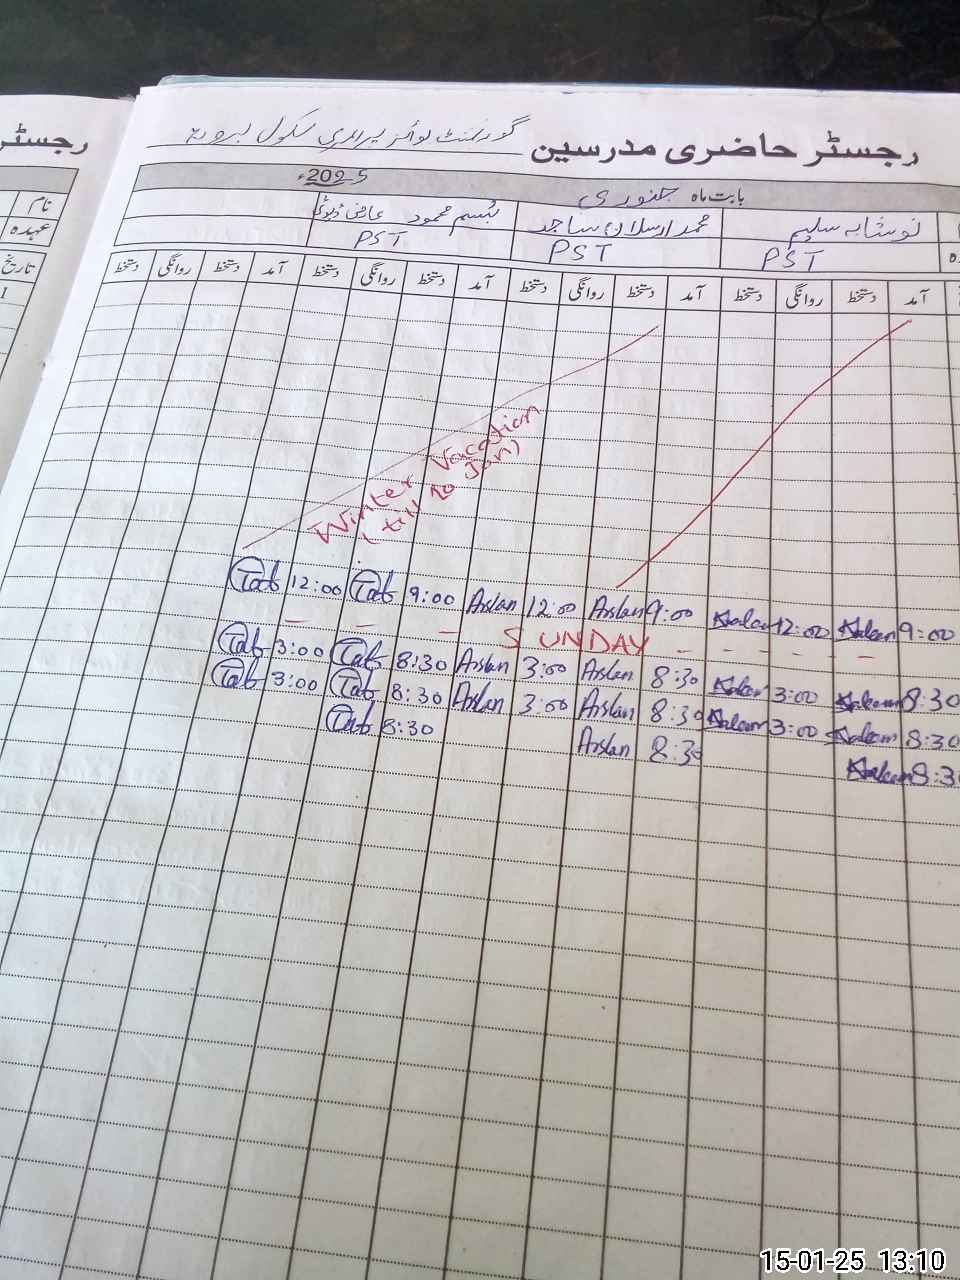 رجسٹر حاضری مدرسین گورنمنٹ بوائز پرائمری سکول
رجسٹر
بابت ماہ جنوری 2025ء
نام
نوشابہ سلیم محمد ارسلان ساجد تبسم محمود عارضی ڈیوٹی
عہدہ
PST PST PST
تاریخ
آمد دستخط روانگی دستخط آمد دستخط روانگی دستخط آمد دستخط روانگی دستخط آمد دستخط روانگی دستخط
1
Winter Vacation
(till 10 Jan)
Tab 12:00 Tab 9:00 Arslan 12:00 Arslan 9:00 12:00 9:00
- - - SUNDAY - - - - -
Tab 3:00 Tab 8:30 Arslan 3:00 Arslan 8:30 3:00 8:30
Tab 3:00 Tab 8:30 Arslan 3:00 Arslan 8:30 3:00 8:30
Tab 8:30 Arslan 8:30 8:3
15-01-25 13:10